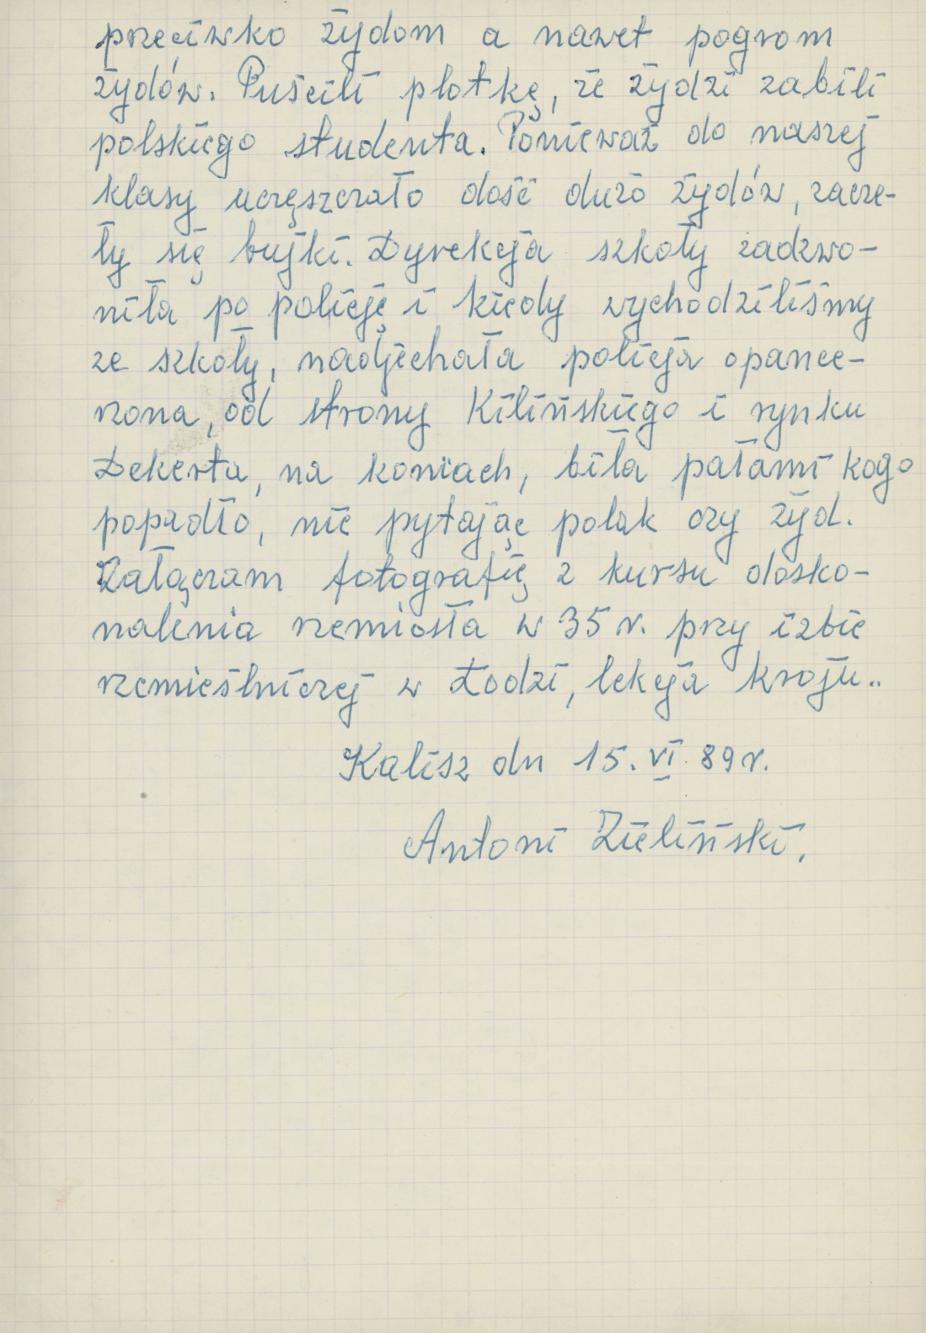 przeciwko żydom a nawet pogrom
żydów. Puścili plotkę, że żydzi zabili
polskiego studenta. Ponieważ do naszej
klasy uczęszczało dość dużo żydów, zacze-
ły się bujki. Dyrekcja szkoły zadzwo-
niła po policję i kiedy wychodziliśmy
ze szkoły, nadjechała policja opance-
rzona, od strony Kilińskiego i rynku
Dekerta, na koniach, biła pałami kogo
popadło, nie pytając polak czy żyd.
Załączam fotografię z kursu dosko-
nalenia rzemiosła w 35 r. przy izbie
rzemieślniczej w Łodzi, lekcja kroju..
Kalisz dn 15. VI. 89 r.
Antoni Zieliński.